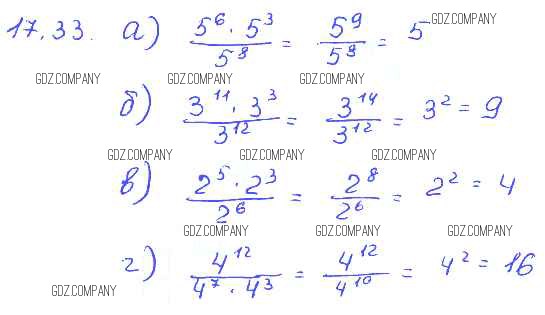 17.33. а) 5⁶ · 5³ / 5⁸ = 5⁹ / 5⁸ = 5
GDZ.COMPANY
GDZ.COMPANY GDZ.COMPANY GDZ.COMPANY
б) 3¹¹ · 3³ / 3¹² = 3¹⁴ / 3¹² = 3² = 9
GDZ.COMPANY GDZ.COMPANY GDZ.COMPANY
в) 2⁵ · 2³ / 2⁶ = 2⁸ / 2⁶ = 2² = 4
GDZ.COMPANY GDZ.COMPANY GDZ.COMPANY
г) 4¹² / 4⁷ · 4³ = 4¹² / 4¹⁰ = 4² = 16
GDZ.COMPANY